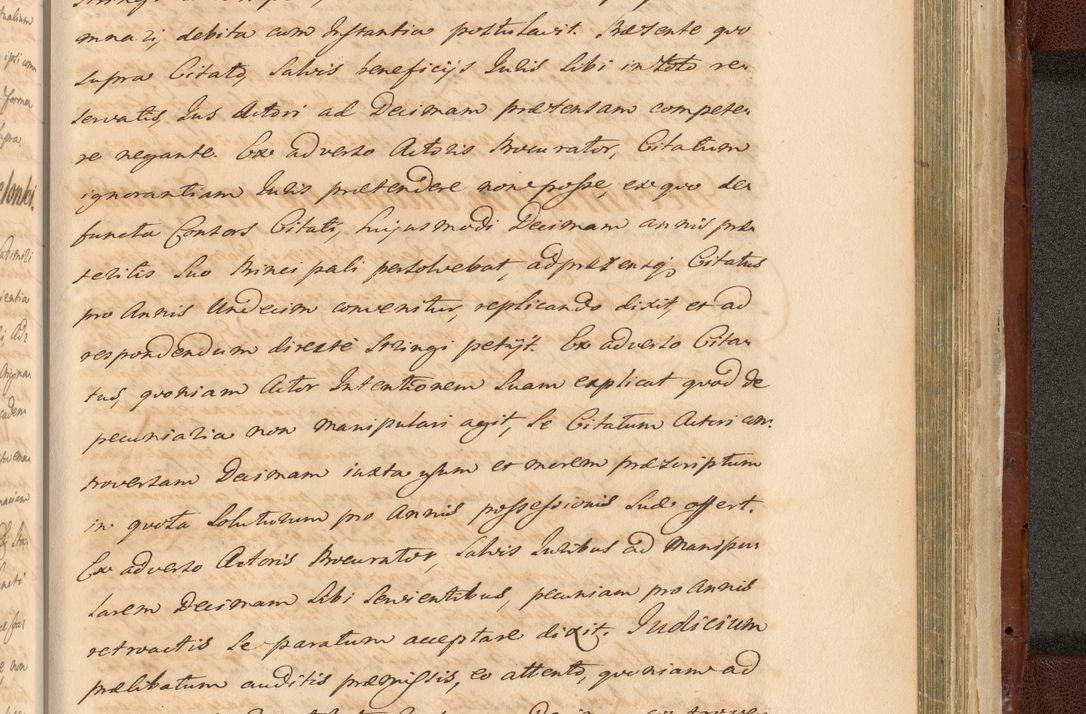 mnari, debita cum Instantia postulavit. Præsente quo
supra Citato, Salvis beneficijs Juris Sibi in toto re-
servatis, Jus Actori ad Decimam prætensam compete-
re negante. Ex adverso Actoris Procurator, Citatum
ignorantiam Juris prætendere non posse, ex quo de-
functa Consors Citati, hujusmodi Decimam annis præ-
teritis Suo Principali persolvebat, ad præsensq; Citatus
pro Annis Undecim convenitur, replicando dixit, et ad
respondendum directè Stringi petijt. Ex adverso Cita-
tus, quoniam Actor Intentionem Suam explicat quod de
pecuniaria non manipulari agit, Se Citatum Actori con-
troversam Decimam iuxta usum et morem præscriptum
in quota Soluturum pro Annis possessionis Suæ offert.
Ex adverso Actoris Procurator, Salvis Juribus ad Manipu-
larem Decimam Sibi Servientibus, pecuniam pro Annis
retroactis Se paratum acceptare dixit. Judicium
prælibatum auditis præmissis, eo attento, quoniam ad